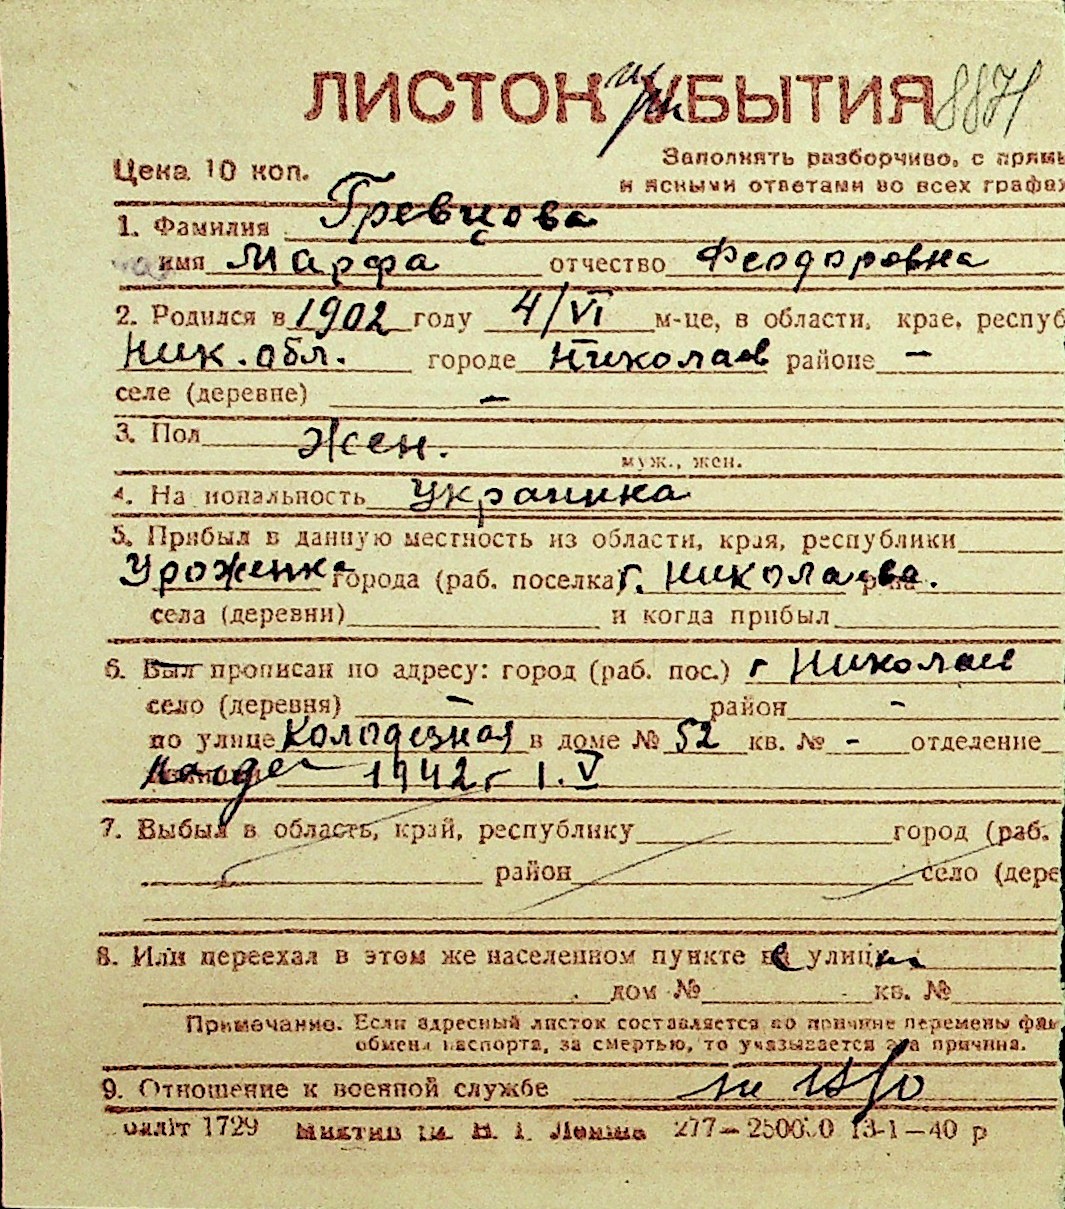 ЛИСТОК УБЫТИЯ 8871
Цена 10 коп.
Заполнять разборчиво, с прямы
и ясными ответами во всех графах
1. Фамилия Гревцова
имя Марфа отчество Феодоровна
2. Родился в 1902 году 4/VI м-це, в области, крае, респуб
Ник. обл. городе Николаев районе —
селе (деревне) —
3. Пол Жен.
муж., жен.
4. Национальность Украинка
5. Прибыл в данную местность из области, края, республики
Уроженка города (раб. поселка) г. Николаева.
села (деревни) и когда прибыл
6. Был прописан по адресу: город (раб. пос.) г Николаев
село (деревня) — район -
по улице Колодезная в доме № 52 кв. № - отделение
1942 г 1.V
7. Выбыл в область, край, республику город (раб.
район село (дере
8. Или переехал в этом же населенном пункте улиц
дом № кв. №
Примечание. Если адресный листок составляется по причине перемены фам
обмена паспорта, за смертью, то указывается эта причина.
9. Отношение к военной службе
1729 277—250000 13-1—40 р